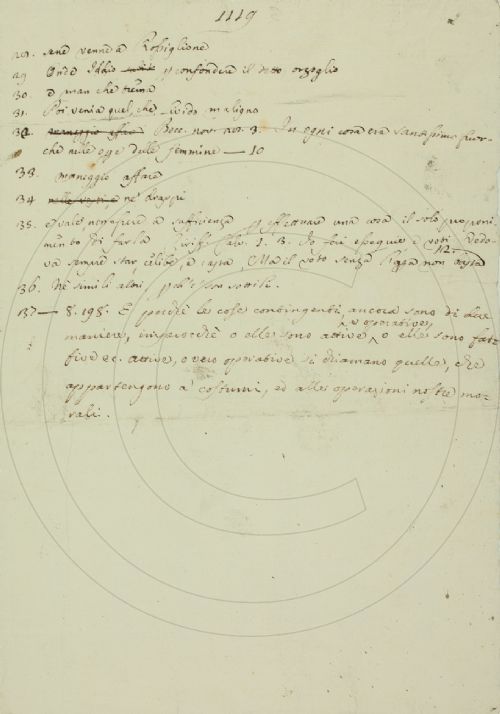 1119
28. sene venne a Robiglione
29 Onde Iddio p confondere il detto orgoglio
30. e man che trema
31. Poi venia quel, che livido maligno
32. Bocc. nov. 3. In ogni cosa era santissimo fuor-
chè nelle opere delle femmine — 10
33. maneggio affare
34 ne' drappi
35. e vale negativa a sufficienza p effettuare una cosa il solo proponi-
mento di farla 1. 3. Io fui e voti Vedo-
va sempre star, celibe, e casta, Ma il voto senza non basta
36. Nè simili altri sottile.
137 — 8. 198. E perchè le cose contingenti, ancora sono di due
maniere, imperocchè o elle sono attive o operative, o elle sono fat-
tive ec. attive, overo operative si chiamano quelle, che
appartengono a' costumi, ed alle operazioni nostre mo-
rali.